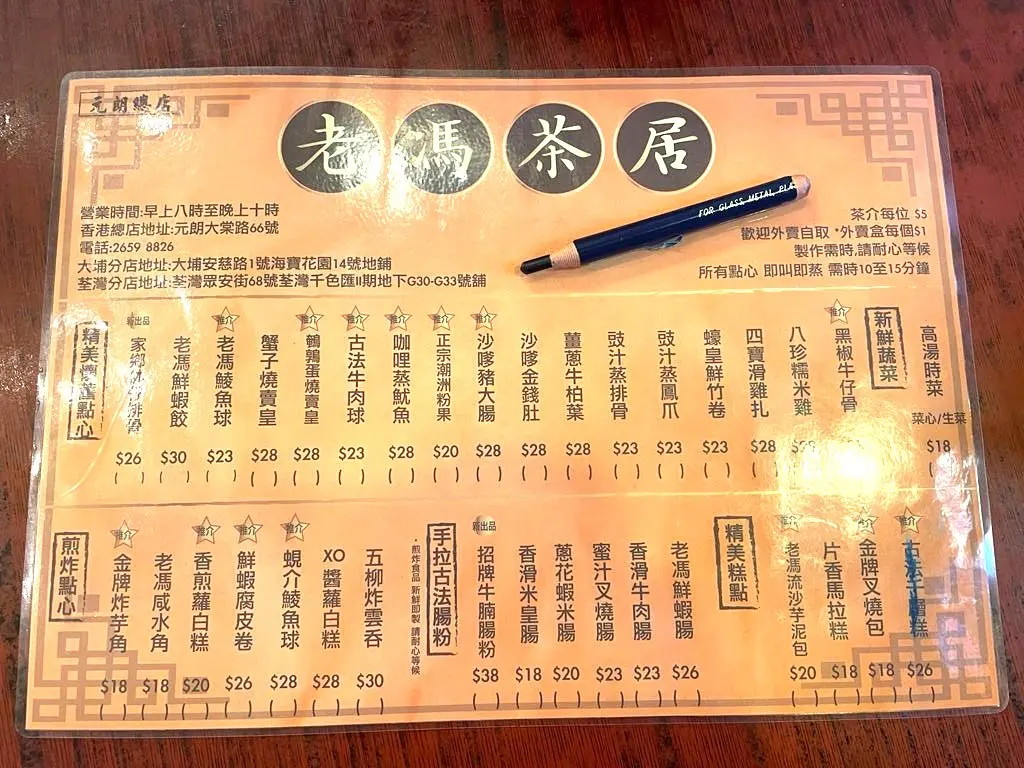 元朗總店
老馮茶居
營業時間:早上八時至晚上十時
香港總店地址:元朗大棠路66號
電話:2659 8826
大埔分店地址:大埔安慈路1號海寶花園14號地鋪
荃灣分店地址:荃灣眾安街68號荃灣千色匯II期地下G30-G33號舖
FOR GLASS, METAL,
茶介每位 $5
歡迎外賣自取 *外賣盒每個$1
製作需時,請耐心等候
所有點心 即叫即蒸 需時10至15分鐘
精美 點心
新出品 家鄉 排骨 $26 ( )
老馮鮮蝦餃 $30 ( )
推介 老馮鯪魚球 $23 ( )
蟹子燒賣皇 $28 ( )
推介 鵪鶉蛋燒賣皇 $28 ( )
推介 古法牛肉球 $23 ( )
推介 咖哩蒸魷魚 $28 ( )
推介 正宗潮洲粉果 $20 ( )
推介 沙嗲豬大腸 $28 ( )
沙嗲金錢肚 $28 ( )
薑蔥牛柏葉 $28 ( )
豉汁蒸排骨 $23 ( )
豉汁蒸鳳爪 $23 ( )
蠔皇鮮竹卷 $23 ( )
四寶滑雞扎 $28 ( )
八珍糯米雞 ( )
推介 黑椒牛仔骨
新鮮蔬菜
高湯時菜 菜心/生菜 $18 ( )
煎炸點心
推介 金牌炸芋角 $18 ( )
老馮咸水角 $18 ( )
推介 香煎蘿白糕 $20 ( )
推介 鮮蝦腐皮卷 $26 ( )
推介 蜆介鯪魚球 $28 ( )
XO醬蘿白糕 $28 ( )
五柳炸雲吞 $30 ( )
•煎炸食品 新鮮即製 請耐心等候
手拉古法腸粉
新出品 招牌牛腩腸粉 $38 ( )
香滑米皇腸 $18 ( )
蔥花蝦米腸 $20 ( )
蜜汁叉燒腸 $23 ( )
香滑牛肉腸 $23 ( )
老馮鮮蝦腸 $26 ( )
精美糕點
推介 老馮流沙芋泥包 $20 ( )
片香馬拉糕 $18 ( )
推介 金牌叉燒包 $18 ( )
推介 古法 糕 $26 ( )